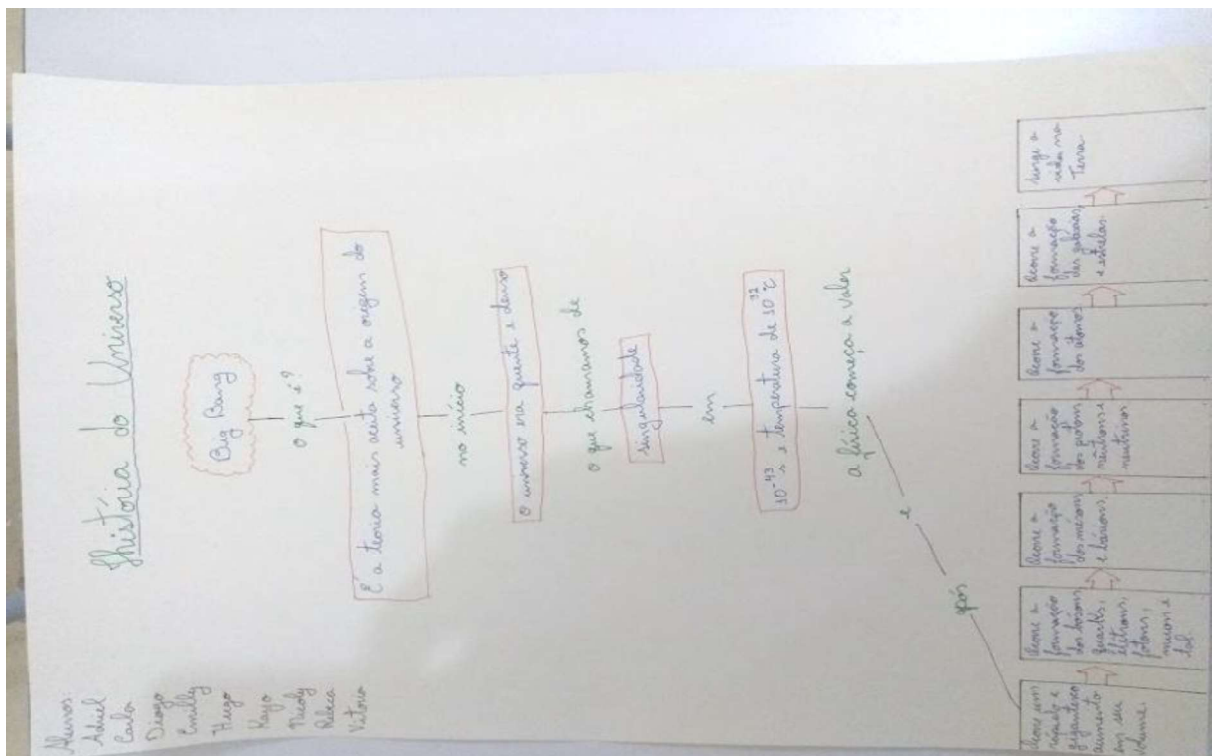 Alunos:
Adriel
Carla
Diogo
Emilly
Hugo
Kayo
Nicoly
Rebeca
Vitoria
História do Universo
Big Bang
o que é?
É a teoria mais aceita sobre a origem do
universo
no início
o universo era quente e denso
o que chamamos de
singularidade
em
10⁻⁴³ s e temperatura de 10³² °C
a física começa a valer
e
após
Ocorre um
rápido e
gigantesco
aumento
em seu
Ocorre a
formação
dos bósons,
quarks,
elétrons,
fótons,
múons e
Ocorre a
formação
dos mésons
e bárions.
Ocorre a
formação
dos prótons
nêutrons e
neutrinos
Ocorre a
formação
dos átomos
Ocorre a
formação
das galáxias,
e estrelas.
surge a
vida na
Terra.